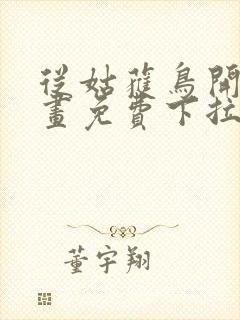 從姑蒦鳥開
畫免費下拉
董宇翔